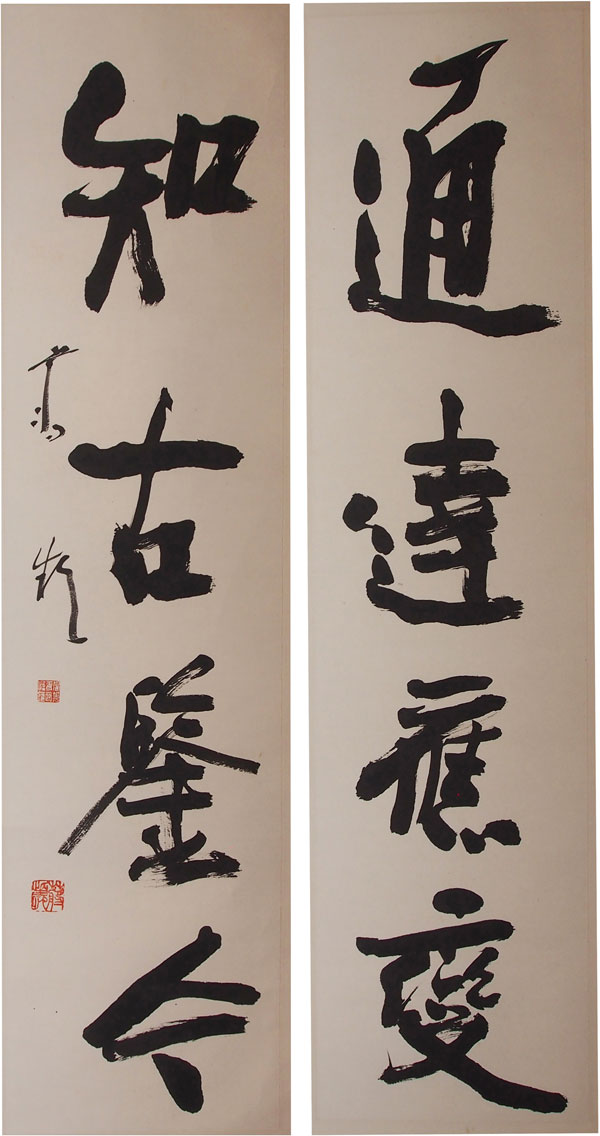 通達應變
知古鑒今